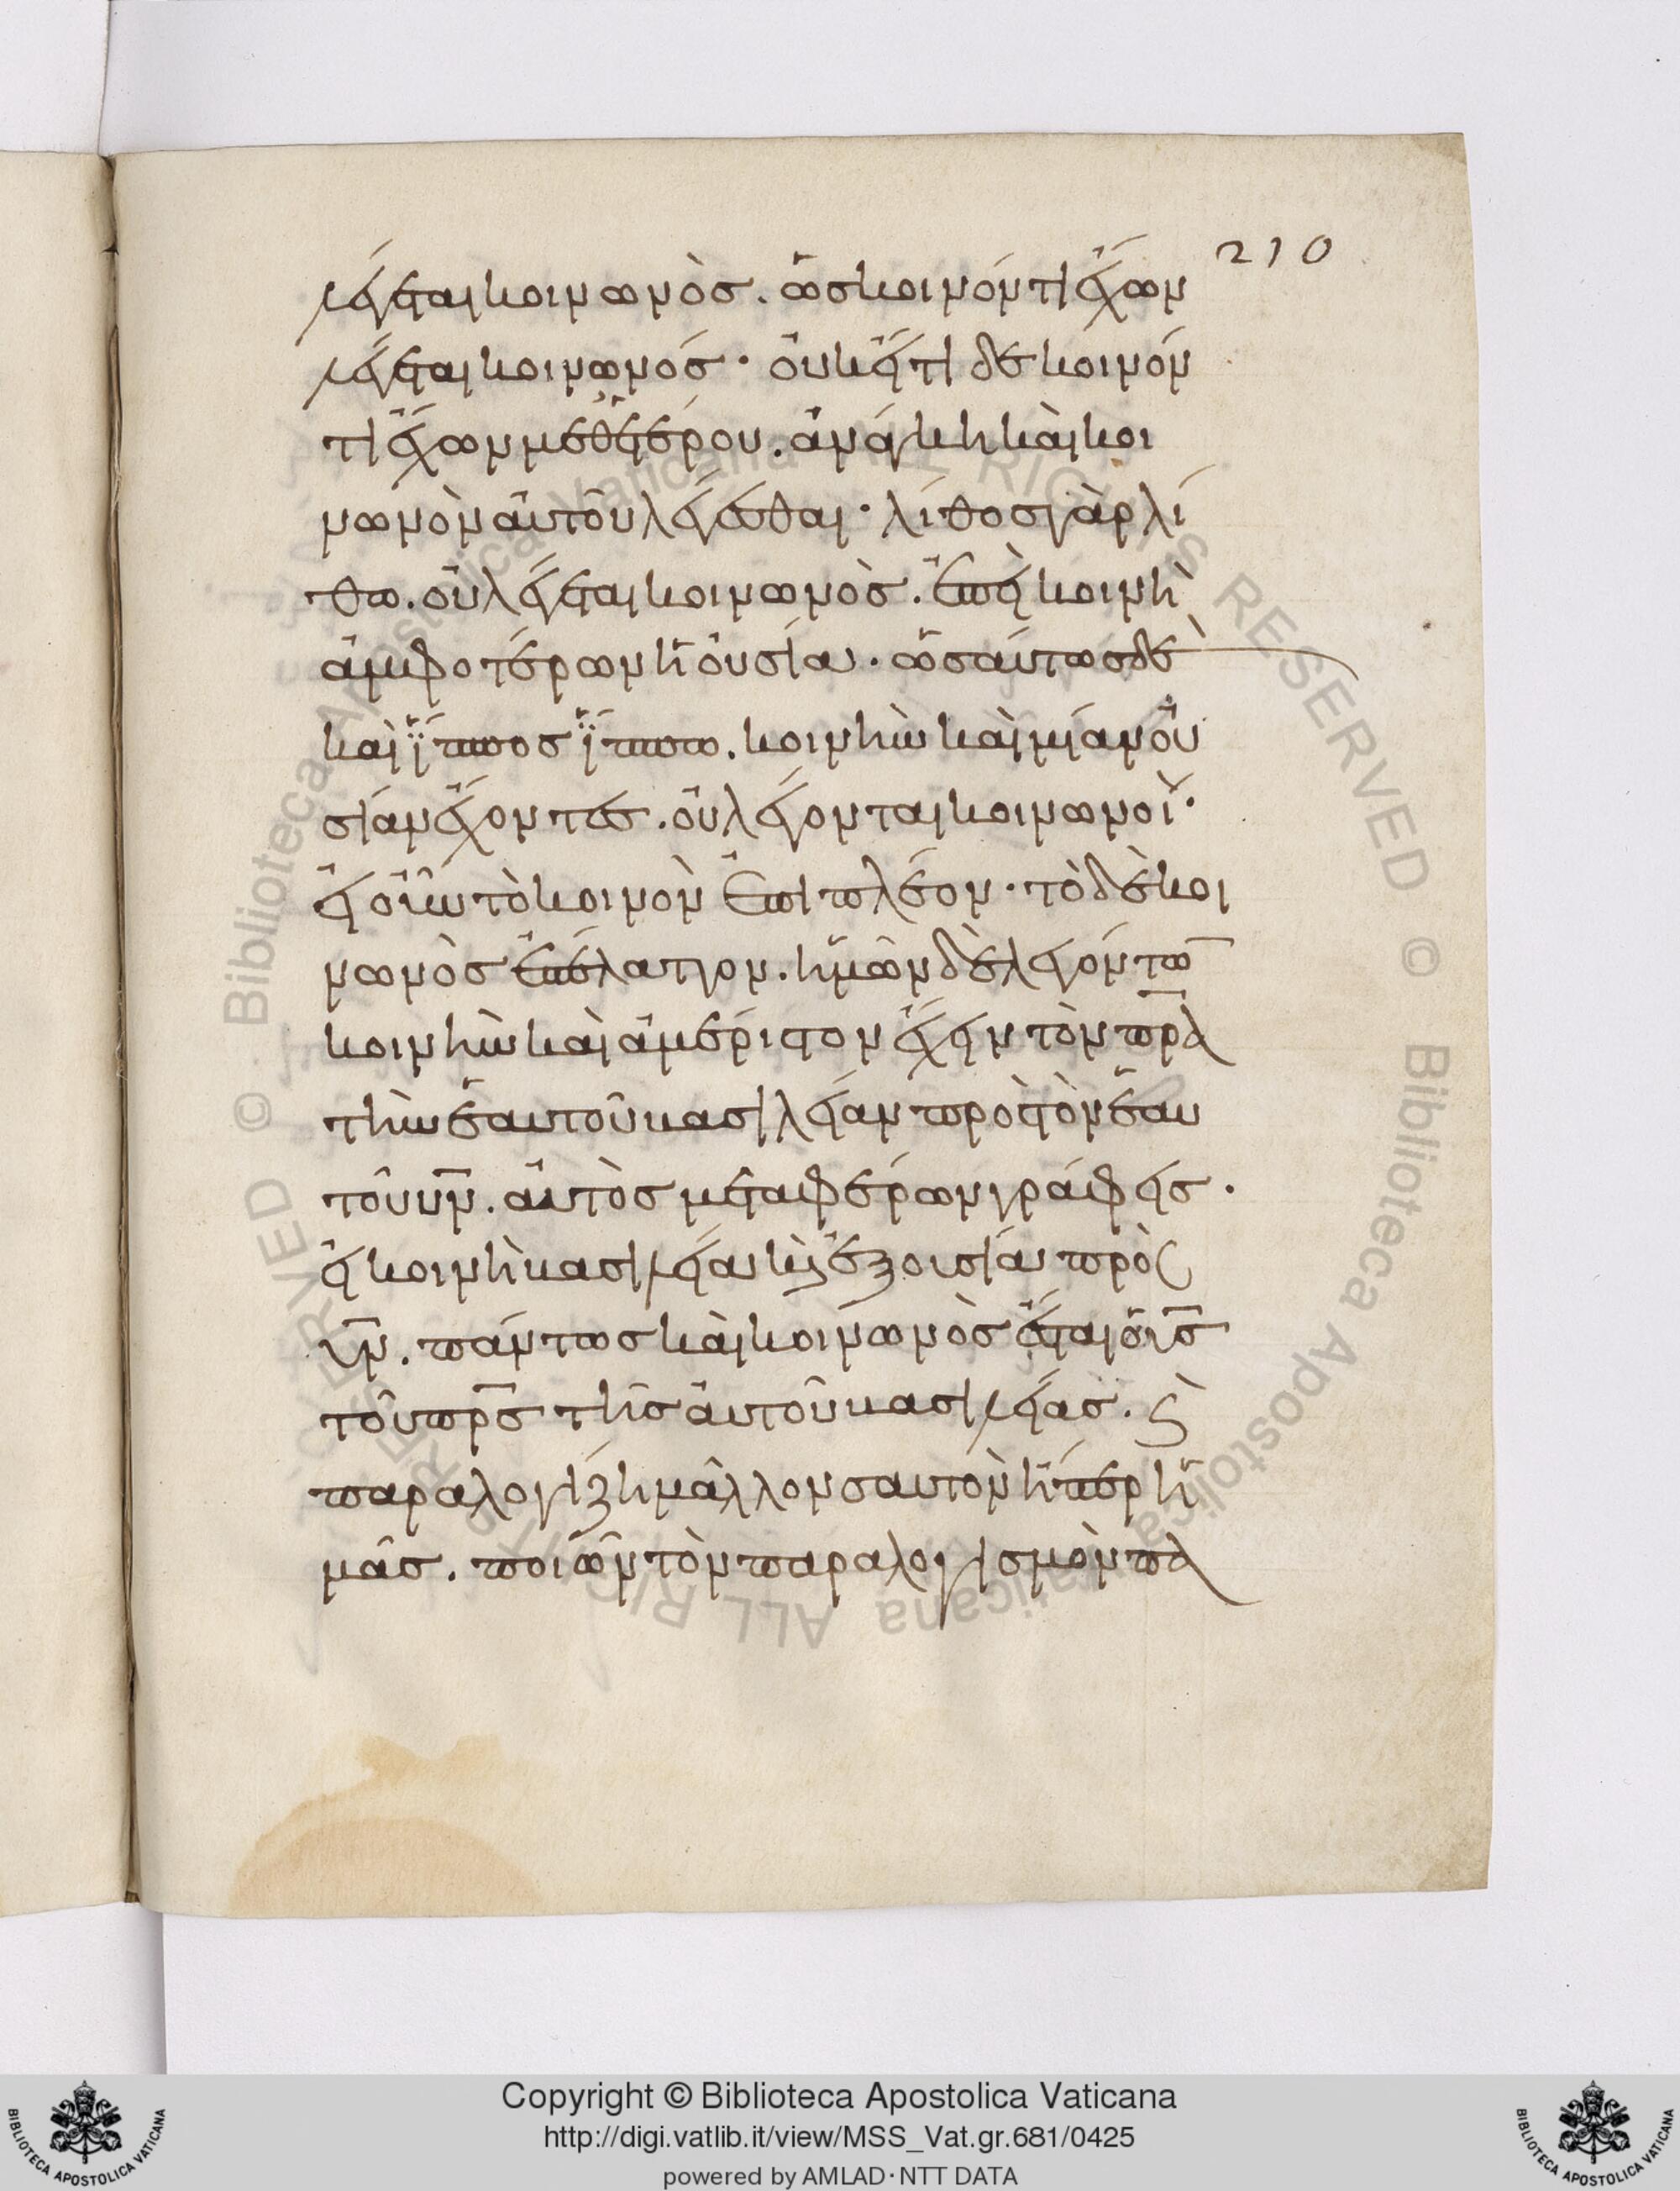 210
λέγεται κοινωνὸς. ὡς κοινόν τι ἔχων
λέγεται κοινωνός· οὐκ ἔτι δε κοινόν
τι ἔχων μεθ' ἑτέρου. ἀνάγκη καὶ κοι
νωνὸν αὐτοῦ λέγεσθαι· λίθος γὰρ λί
θω. οὐ λέγεται κοινωνὸς. ἐπεὶ κοινὴ
ἀμφοτέρων ἡ οὐσία· ὡσαύτως δὲ
καὶ ἵππος ἵππω. κοινὴν καὶ μίαν οὐ
σίαν ἔχοντες. οὐ λέγονται κοινωνοί·
εἰ οὖν τὸ κοινὸν ἐπὶ πλέον· τὸ δὲ κοι
νωνὸς ἐπ' ἔλαττον. ἡμῶν δὲ λεγόντω̅
κοινὴν καὶ ἀμέριστον ἔχειν τὸν πρ̅α
τὴν ἑαυτοῦ βασιλείαν πρὸς τὸν ἑαυ
τοῦ υν̅. αὐτὸς μεταφέρων γράφεις·
εἰ κοινὴ βασιλεία κὶ ἐξουσία πρὸς
υν̅. πάντως καὶ κοινωνὸς ἔσται ὁ υς̅
τοῦ πρς̅ τῆς αὐτοῦ βασιλείας. κὶ
παραλογίζη μᾶλλον σαυτὸν ἤπερ ἡ
μᾶς. ποιῶν τὸν παραλογισμὸν πα
Copyright © Biblioteca Apostolica Vaticana
http://digi.vatlib.it/view/MSS_Vat.gr.681/0425
powered by AMLAD·NTT DATA